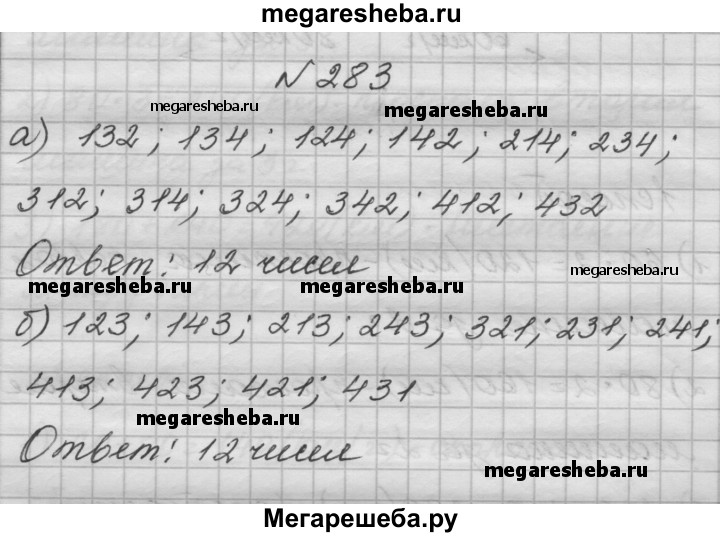 megaresheba.ru
№283
megaresheba.ru
megaresheba.ru
а) 132; 134; 124; 142; 214; 234;
312; 314; 324; 342; 412; 432
Ответ: 12 чисел
megaresheba.ru
megaresheba.ru
megaresheba.ru
б) 123; 143; 213; 243; 321; 231; 241;
413; 423; 421; 431
megaresheba.ru
Ответ: 12 чисел
megaresheba.ru
Мегарешеба.ру